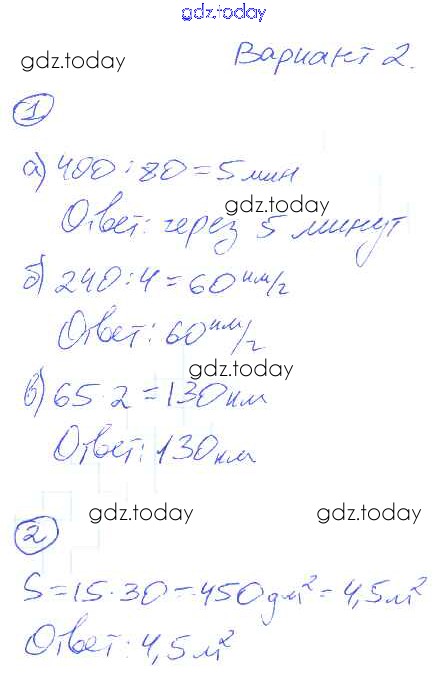 gdz.today
gdz.today
Вариант 2.
1
а) 400 : 80 = 5 мин
gdz.today
Ответ: через 5 минут
б) 240 : 4 = 60 км/г
gdz.today
Ответ: 60 км/г
gdz.today
в) 65 · 2 = 130 км
Ответ: 130 км
gdz.today
gdz.today
2
S = 15 · 30 = 450 дм² = 4,5 м²
Ответ: 4,5 м²
gdz.today